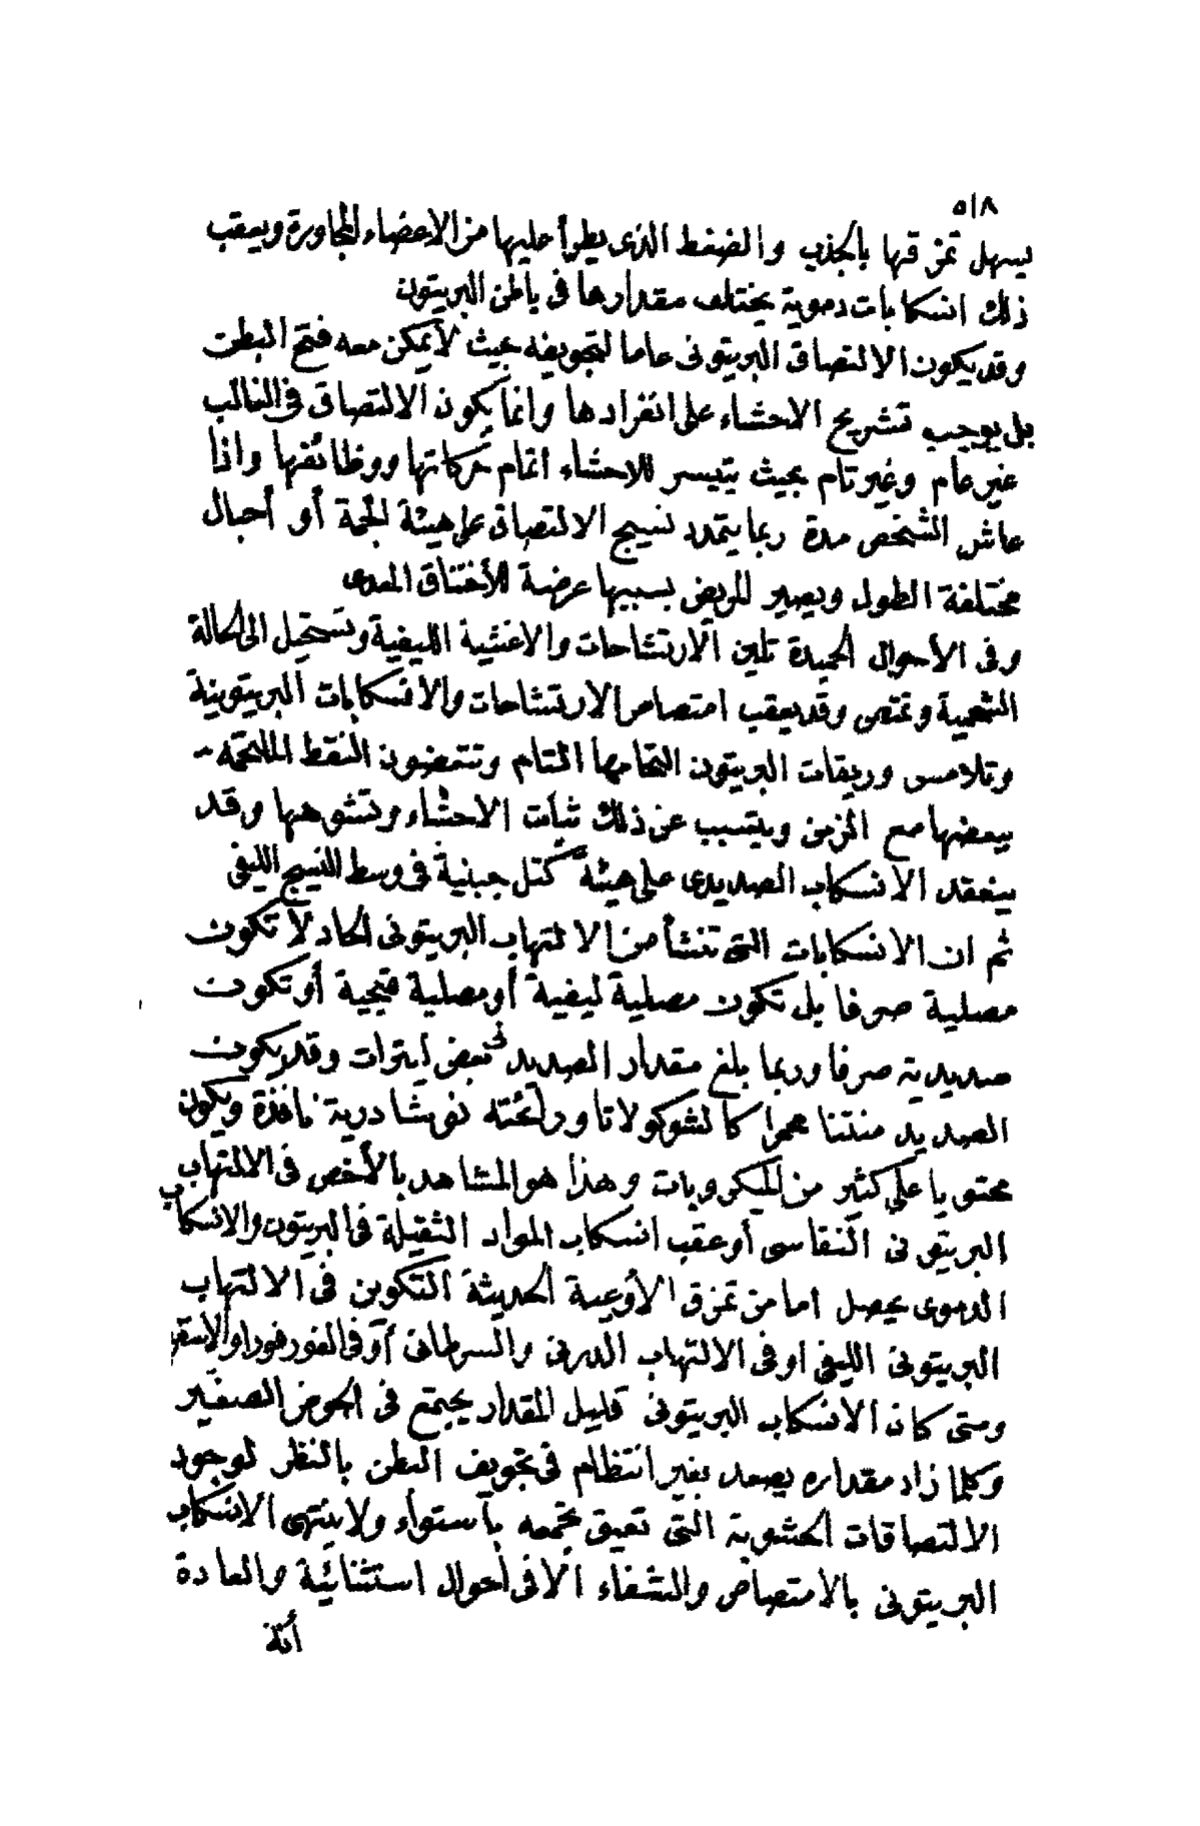 ٥١٨
يسهل تمزقها بالجذب والضغط الذى يطرأ عليها من الاعضاء المجاورة ويعقب
ذلك انسكابات دموية يختلف مقدارها فى باطن البريتون
وقد يكون الالتصاق البريتونى عاما لتجويفه بحيث لا يمكن معه فتح البطن
بل يوجب تشريح الاحشاء على انفرادها وانما يكون الالتصاق فى الغالب
غير عام وغير تام بحيث يتيسر للاحشاء اتمام حركاتها ووظائفها واذا
عاش الشخص مدة ربما يتمدد نسيج الالتصاق على هيئة لجمة أو أحبال
مختلفة الطول ويصير المريض بسببها عرضة للأختناق المعدى
وفى الأحوال الحميدة تلين الارتشاحات والاغشية الليفية وتستحيل الى الحالة
الشحمية وتمتص وقد يعقب امتصاص الارتشاحات والانسكابات البريتونية
وتلامس وريقات البريتون التحامها التام وتنضمون النقط الملتحمة
ببعضها مع المزمن ويتسبب عن ذلك ثبات الاحشاء وتشوهها وقد
ينعقد الانسكاب الصديدى على هيئة كتل جبنية فى وسط النسيج الليفى
ثم ان الانسكابات التى تنشأ من الالتهاب البريتونى الحاد لا تكون
مصلية صرفا بل تكون مصلية ليفية أو مصلية قيحية أو تكون
صديدية صرفا وربما بلغ مقدار الصديد فى بعض لترات وقد يكون
الصديد منتنا محمرا كالشوكولاتا ورائحته نوشادرية نافذة ويكون
محتويا على كثير من الميكروبات وهذا هو المشاهد بالأخص فى الالتهاب
البريتونى النفاسى أو عقب انسكاب المواد الثقيلة فى البريتون والانسكاب
الدموى يحصل اما من تمزق الأوعية الحديثة التكوين فى الالتهاب
البريتونى الليفى او فى الالتهاب الدرنى والسرطانى أو فى الفورفورا والاسقر
ومتى كان الانسكاب البريتونى قليل المقدار يجتمع فى الحوض الصغير
وكلما زاد مقداره يصعد بغير انتظام فى تجويف البطن بالنظر لوجود
الالتصاقات الحشوية التى تعيق تجمعه بأستواء ولا ينتهى الانسكاب
البريتونى بالامتصاص والشفاء الا فى أحوال استثنائية والعادة
أنه